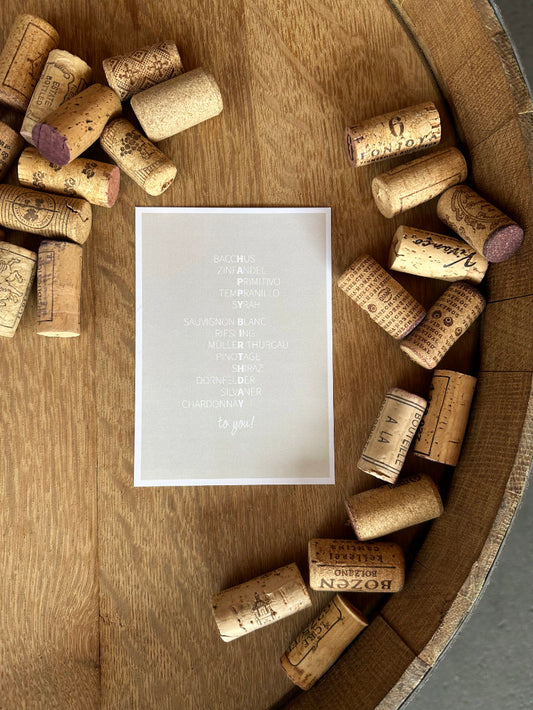 BACCHUS
ZINFANDEL
PRIMITIVO
TEMPRANILLO
SYRAH
SAUVIGNON BLANC
RIESLING
MÜLLER-THURGAU
PINOTAGE
SHIRAZ
DORNFELDER
SILVANER
CHARDONNAY
to you!
6
FONJOYA
Vivanco
BOUTEILLE
A LA
kellerei
cantina
BOZEN
BOLZANO